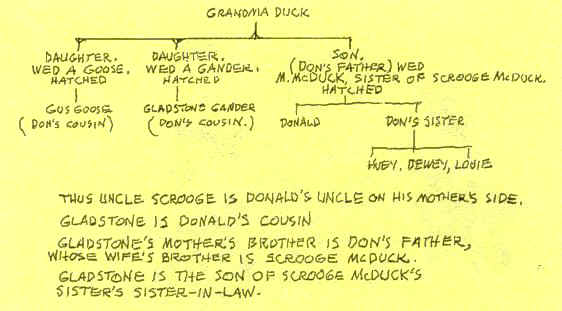 GRANDMA DUCK
DAUGHTER.
WED A GOOSE.
HATCHED
GUS GOOSE
(DON'S COUSIN)
DAUGHTER.
WED A GANDER.
HATCHED
GLADSTONE GANDER
(DON'S COUSIN.)
SON.
(DON'S FATHER) WED
M. McDUCK, SISTER OF SCROOGE McDUCK.
HATCHED
DONALD
DON'S SISTER
HUEY, DEWEY, LOUIE
THUS UNCLE SCROOGE IS DONALD'S UNCLE ON HIS MOTHER'S SIDE.
GLADSTONE IS DONALD'S COUSIN
GLADSTONE'S MOTHER'S BROTHER IS DON'S FATHER,
WHOSE WIFE'S BROTHER IS SCROOGE McDUCK.
GLADSTONE IS THE SON OF SCROOGE McDUCK'S
SISTER'S SISTER-IN-LAW.